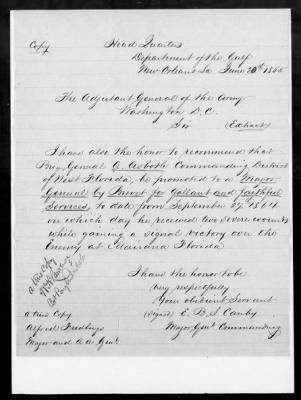 Copy
Head Quarters
Department of the Gulf
New Orleans La June 20th 1865
The Adjutant General of the Army
Washington D.C.
Sir
(Extract)
I have also the honor to recommend that
Brig General A. Asboth Commanding District
of West Florida, be promoted to a Major
General by Brevet for Gallant and faithful
Services, to date from September 27th 1864
on which day he received two severe wounds
while gaining a signal victory over the
Enemy at Mairana Florida
I have the honor to be
very respectfully
Your obedient Servant
(Signed) E. R. S. Canby
Major Genl Commanding
A true Copy
A true Copy
Alfred Fredberg
Major and A. A. Genl